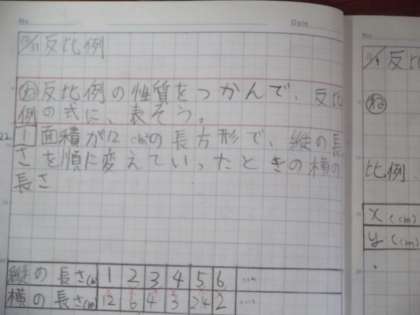 No.
Date
12/11 反比例
め 反比例の性質をつかんで、反比
例の式に、表そう。
1 面積が12cm²の長方形で、縦の長
さを順に変えていったときの横の
長さ
縦の長さ(cm) 1 2 3 4 5 6 ……
横の長さ(cm) 12 6 4 3 2.4 2 ……
反比例
め
比例
x (cm)
y (cm)